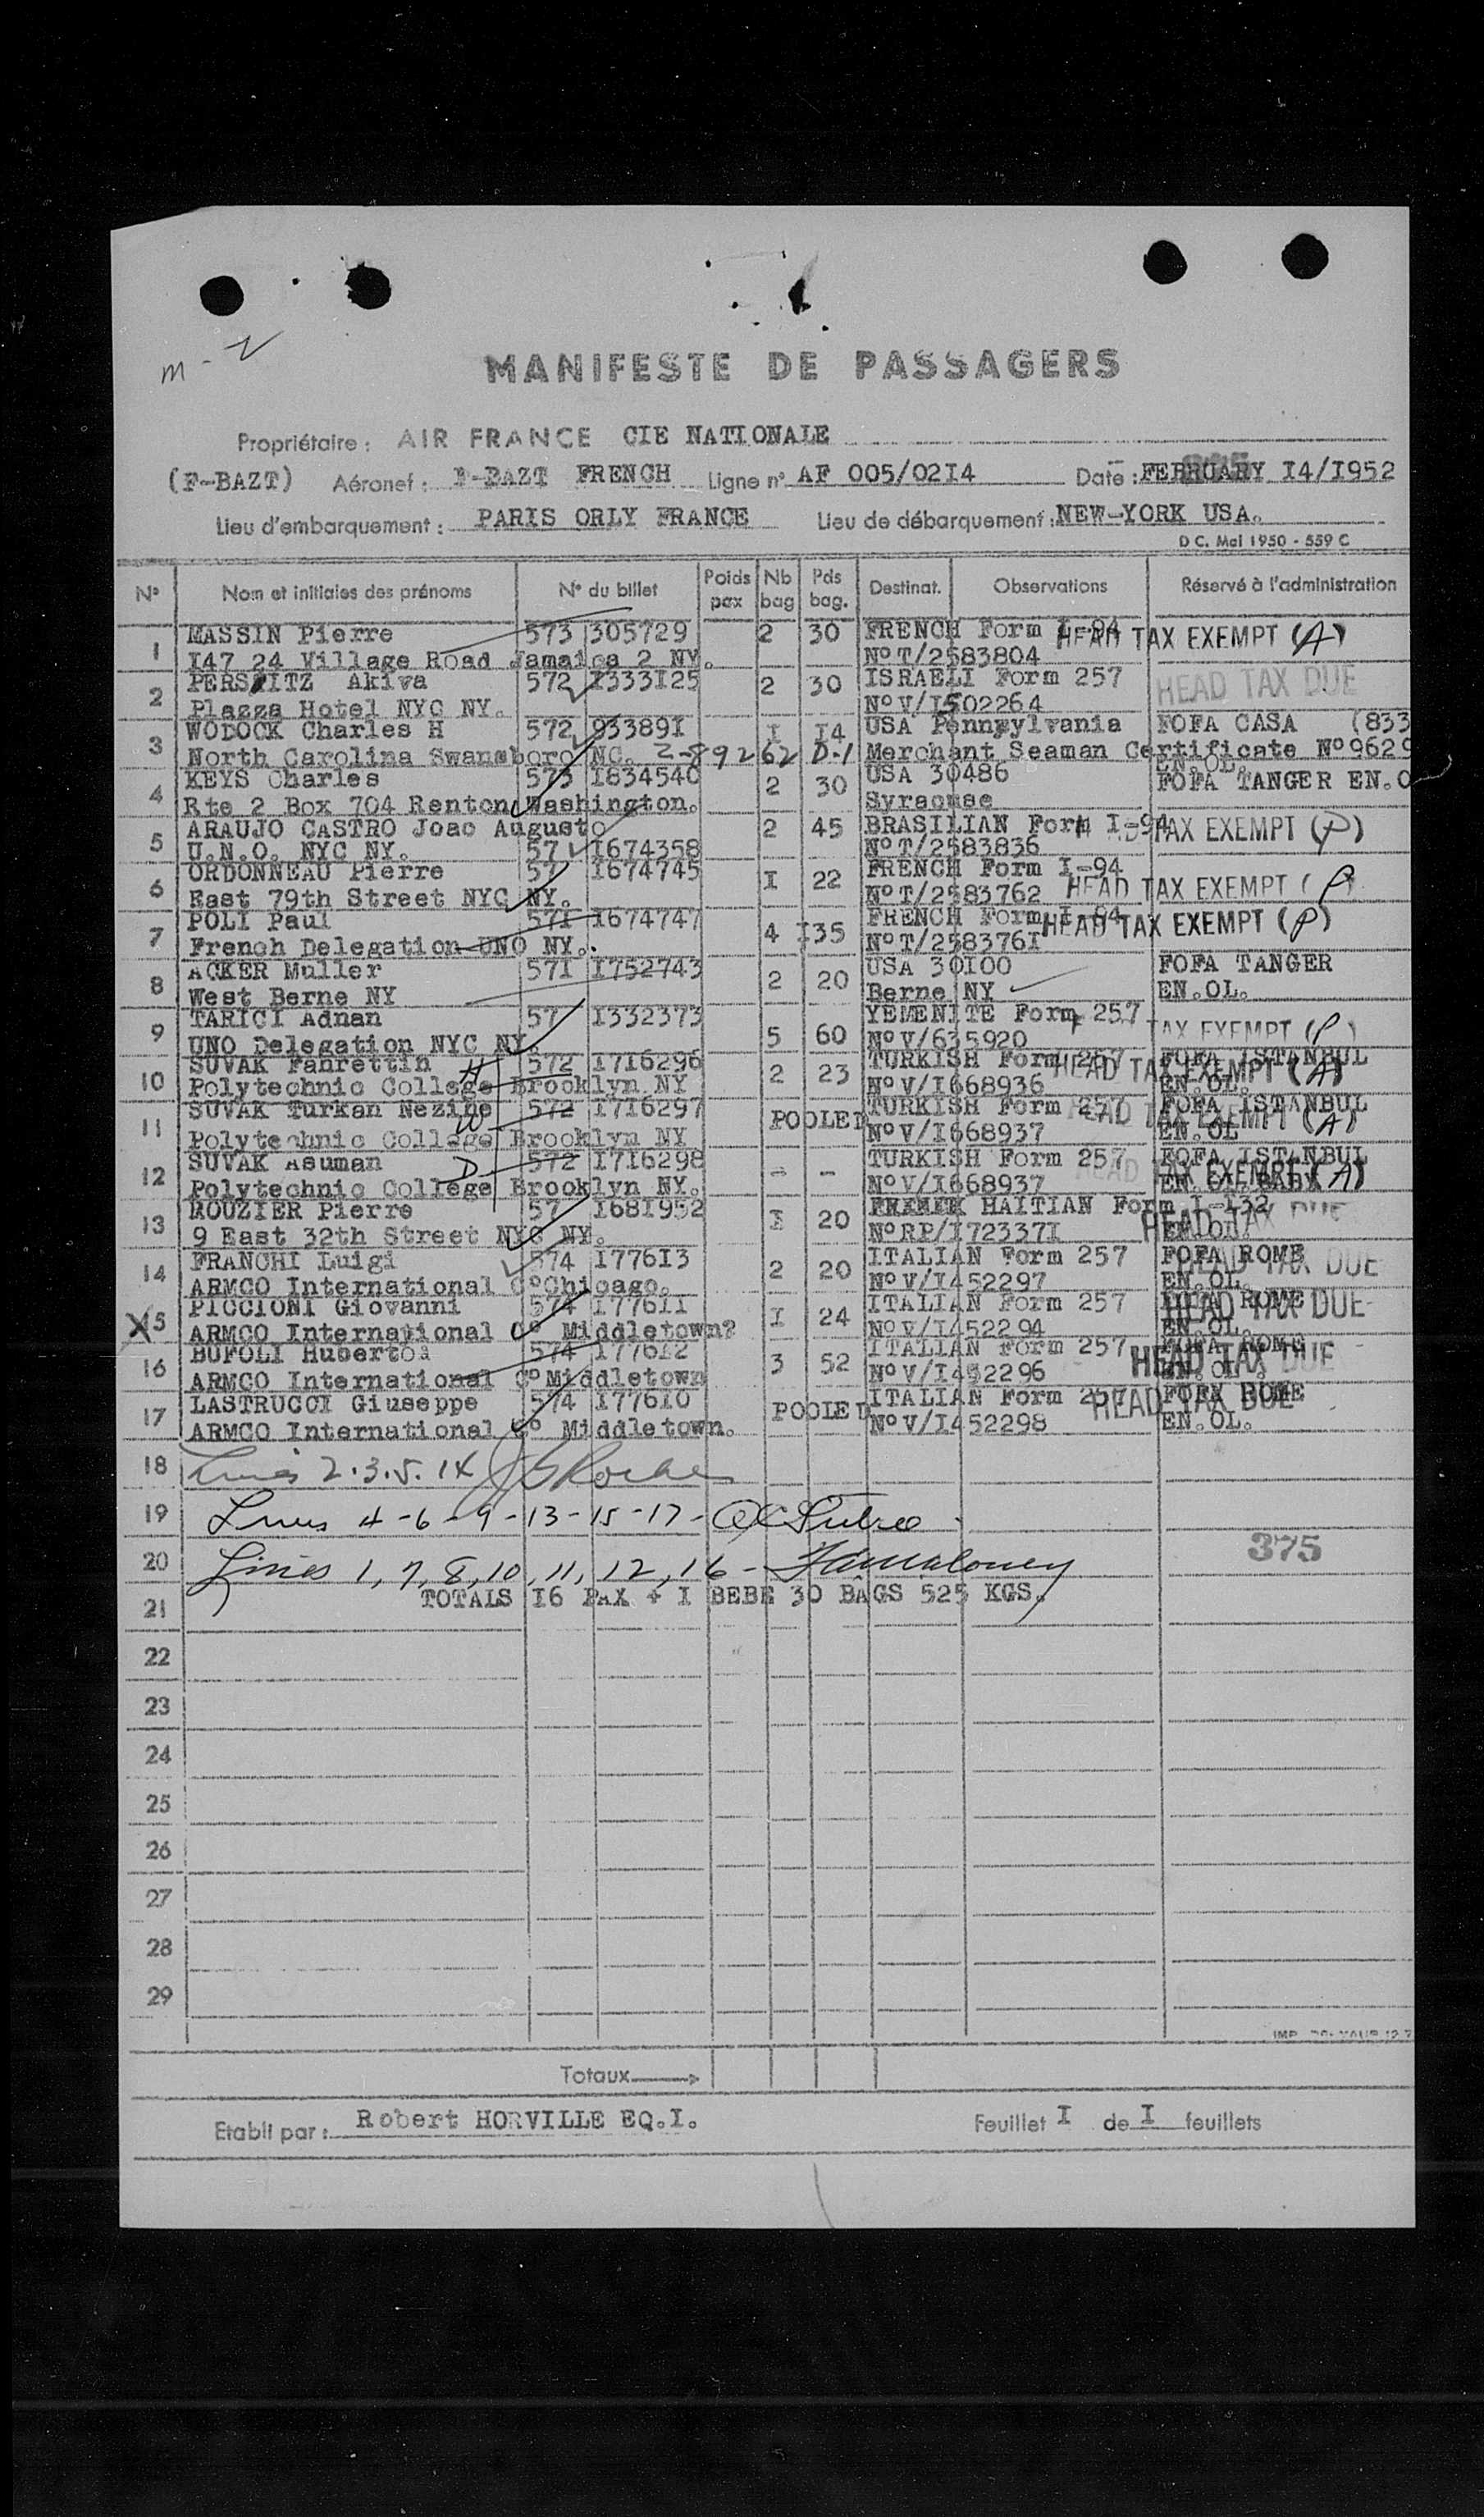 m - N
MANIFESTE DE PASSAGERS
Propriétaire : AIR FRANCE CIE NATIONALE
(F-BAZT) Aéronef : F-BAZT FRENCH Ligne n° AF 005/02I4 Date : FEBRUARY I4/I952
Lieu d'embarquement : PARIS ORLY FRANCE Lieu de débarquement : NEW-YORK USA.
D C. Mai 1950 - 559 C
N° Nom et initiales des prénoms N° du billet Poids pax Nb bag Pds bag. Destinat. Observations Réservé à l'administration
1 MASSIN Pierre 573 305729 2 30 FRENCH Form I-94 HEAD TAX EXEMPT (A)
I47 24 Village Road Jamaica 2 NY. N°T/2583804
2 PERSITZ Akiva 572 I333I25 2 30 ISRAELI Form 257 HEAD TAX DUE
Plazza Hotel NYC NY. N°V/I502264
3 WODOCK Charles H 572 93389I I I4 USA Pennsylvania FOFA CASA (833
North Carolina Swansboro NC. 2-89262 D-1 Merchant Seaman Certificate N°9629
EN.OL.
4 KEYS Charles 573 I834540 2 30 USA 30486 FOFA TANGER EN.O
Rte 2 Box 704 Renton Washington. Syracuse
5 ARAUJO CASTRO Joao Augusto 57 I674358 2 45 BRASILIAN Form I-94 TAX EXEMPT (P)
U.N.O. NYC NY. N°T/2583836
6 ORDONNEAU Pierre 57 I674745 I 22 FRENCH Form I-94 HEAD TAX EXEMPT (P)
East 79th Street NYC NY. N°T/2583762
7 POLI Paul 57I I674747 4 I35 FRENCH Form I-94 HEAD TAX EXEMPT (P)
French Delegation UNO NY. N°T/258376I
8 ACKER Muller 57I I752743 2 20 USA 30I00 FOFA TANGER
West Berne NY Berne NY EN.OL.
9 TARICI Adnan 57 I332373 5 60 YEMENITE Form 257 TAX EXEMPT (P)
UNO Delegation NYC NY N°V/635920
10 SUVAK Fahrettin H 572 I7I6296 2 23 TURKISH Form 257 FOFA ISTANBUL HEAD TAX EXEMPT (A)
Polytechnic College Brooklyn NY N°V/I668936 EN.OL.
11 SUVAK Turkan Nezihe W 572 I7I6297 POOLED TURKISH Form 257 FOFA ISTANBUL HEAD TAX EXEMPT (A)
Polytechnic College Brooklyn NY N°V/I668937 EN.OL
12 SUVAK Asuman D 572 I7I6298 - - TURKISH Form 257 FOFA ISTANBUL HEAD TAX EXEMPT (A)
Polytechnic College Brooklyn NY. N°V/I668937 EN.OL.BABY
13 MOUZIER Pierre 57 I68I952 I 20 HAITIAN Form I-I32 HEAD TAX DUE
9 East 32th Street NYC NY. N°RP/I72337I EN.OL.
14 FRANCHI Luigi 574 I776I3 2 20 ITALIAN Form 257 FOFA ROME HEAD TAX DUE
ARMCO International C° Chicago. N°V/I452297 EN.OL.
X 15 PICCIONI Giovanni 574 I776II I 24 ITALIAN Form 257 FOFA ROME HEAD TAX DUE
ARMCO International C° Middletown? N°V/I452294 EN.OL.
16 BUFOLI Huberto 574 I776I2 3 52 ITALIAN Form 257 FOFA ROME HEAD TAX DUE
ARMCO International C° Middletown N°V/I452296 EN.OL.
17 LASTRUCCI Giuseppe 574 I776I0 POOLED ITALIAN Form 257 FOFA ROME HEAD TAX DUE
ARMCO International C° Middletown. N°V/I452298 EN.OL.
18 Lines 2.3.5.14
19 Lines 4-6-9-13-15-17-
375
20 Lines 1, 7, 8, 10, 11, 12, 16 - Maloney
21 TOTALS I6 PAX + I BEBE 30 BAGS 525 KGS.
22
23
24
25
26
27
28
29
Totaux
Etabli par : Robert HORVILLE EQ.I. Feuillet I de I feuillets